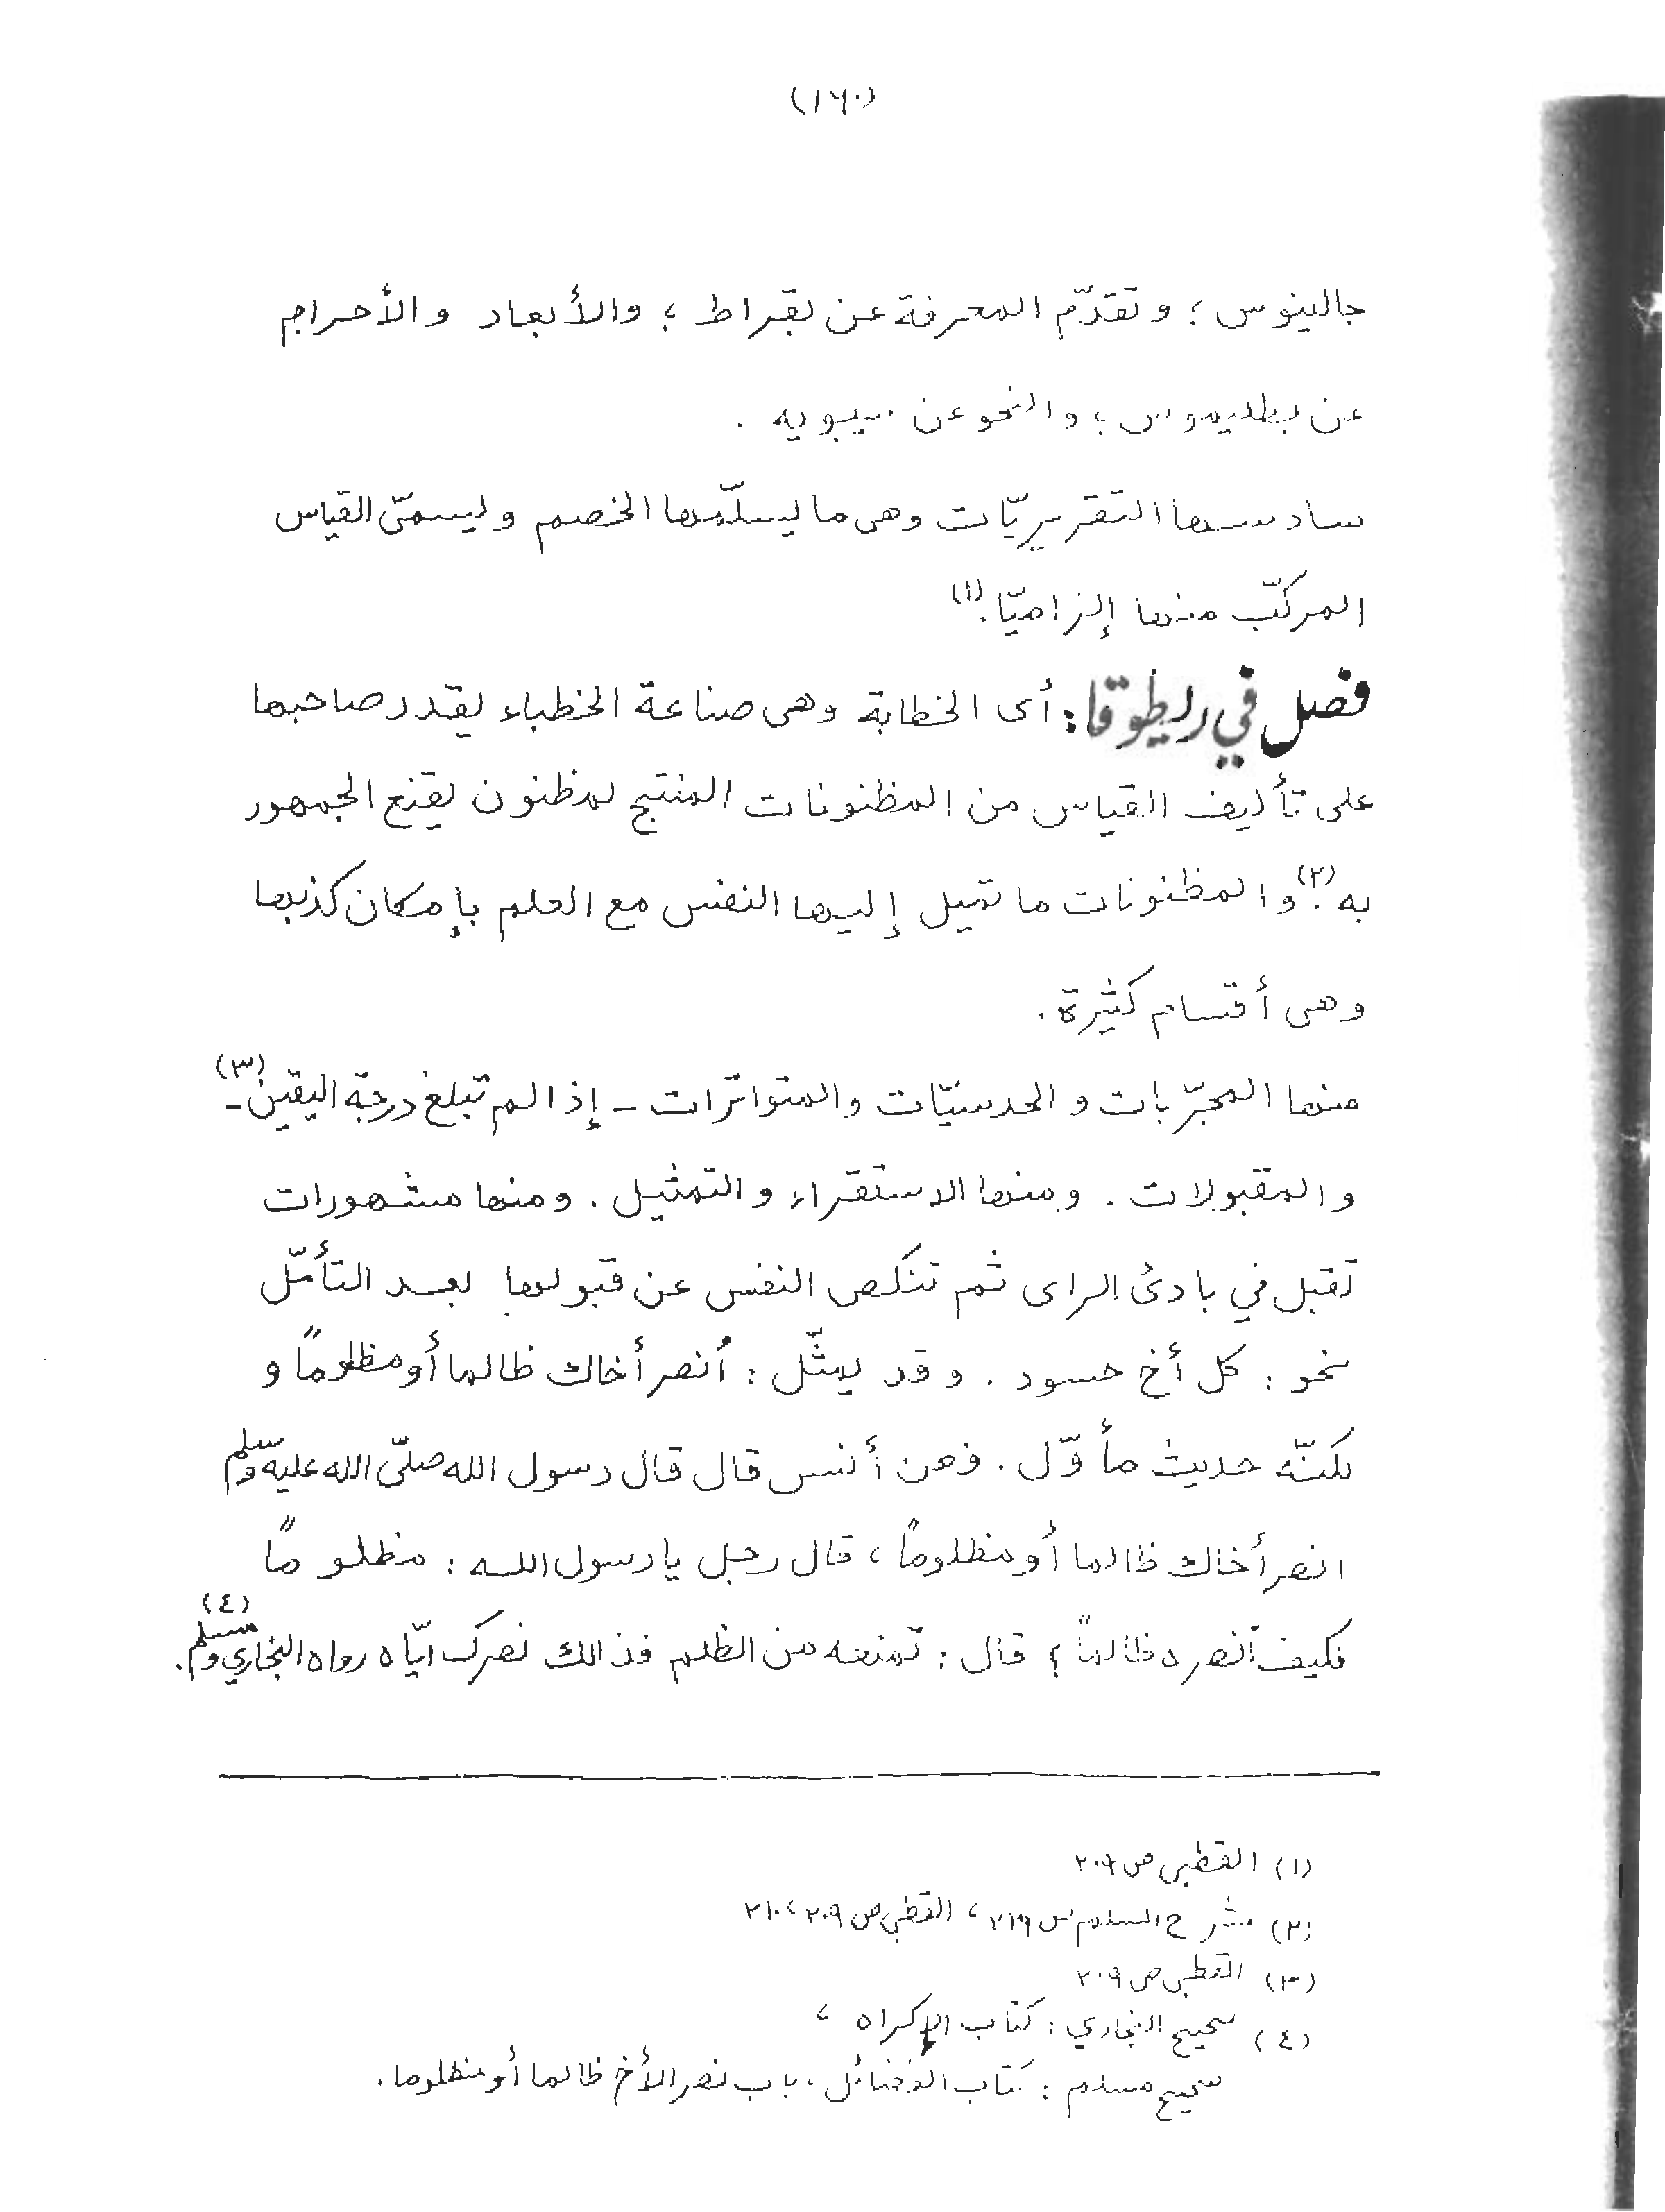 (١٦٠)
جالينوس ؛ وتقدّم المعرفة عن بقراط ؛ والأبعاد والأجرام
عن بطليموس ؛ والنحو عن سيبويه .
سادسها التقريريّات وهى ما يسلّمها الخصم ويسمّى القياس
المركّب منها إلزاميّا.(١)
فصل في ريطوقا: أى الخطابة وهى صناعة الخطباء يقدر صاحبها
على تأليف القياس من المظنونات المنتج لمظنون يقنع الجمهور
به.(٢) والمظنونات ما تميل إليها النفس مع العلم بإمكان كذبها
وهى أقسام كثيرة .
منها المجرّبات و الحدسيّات والمتواترات - إذا لم تبلغ درجة اليقين -(٣)
والمقبولات . ومنها الاستقراء والتمثيل . ومنها مشهورات
تقبل في بادئ الراى ثم تنكص النفس عن قبولها بعد التأمّل
نحو : كل أخ حسود . وقد يمثّل : أُنصر أخاك ظالما أو مظلومًا و
لكنّه حديث مأوّل . فعن أنس قال قال رسول الله صلّى الله عليه وسلم
انصر أخاك ظالما أو مظلومًا ، قال رجل يا رسول الله : مظلومًا
فكيف أنصره ظالمًا ؟ قال : تمنعه من الظلم فذالك نصرك ايّاه رواه البخاري ومسلم .(٤)
(١) القطبى ص ٢٠٩
(٢) شرح السلم ص ، القطبى ص ٢٠٩، ٢١٠
(٣) القطبى ص ٢٠٩
(٤) صحيح البخاري : كتاب الإكراه ،
صحيح مسلم : كتاب الفضائل ، باب نصر الأخ ظالما أو مظلوما .